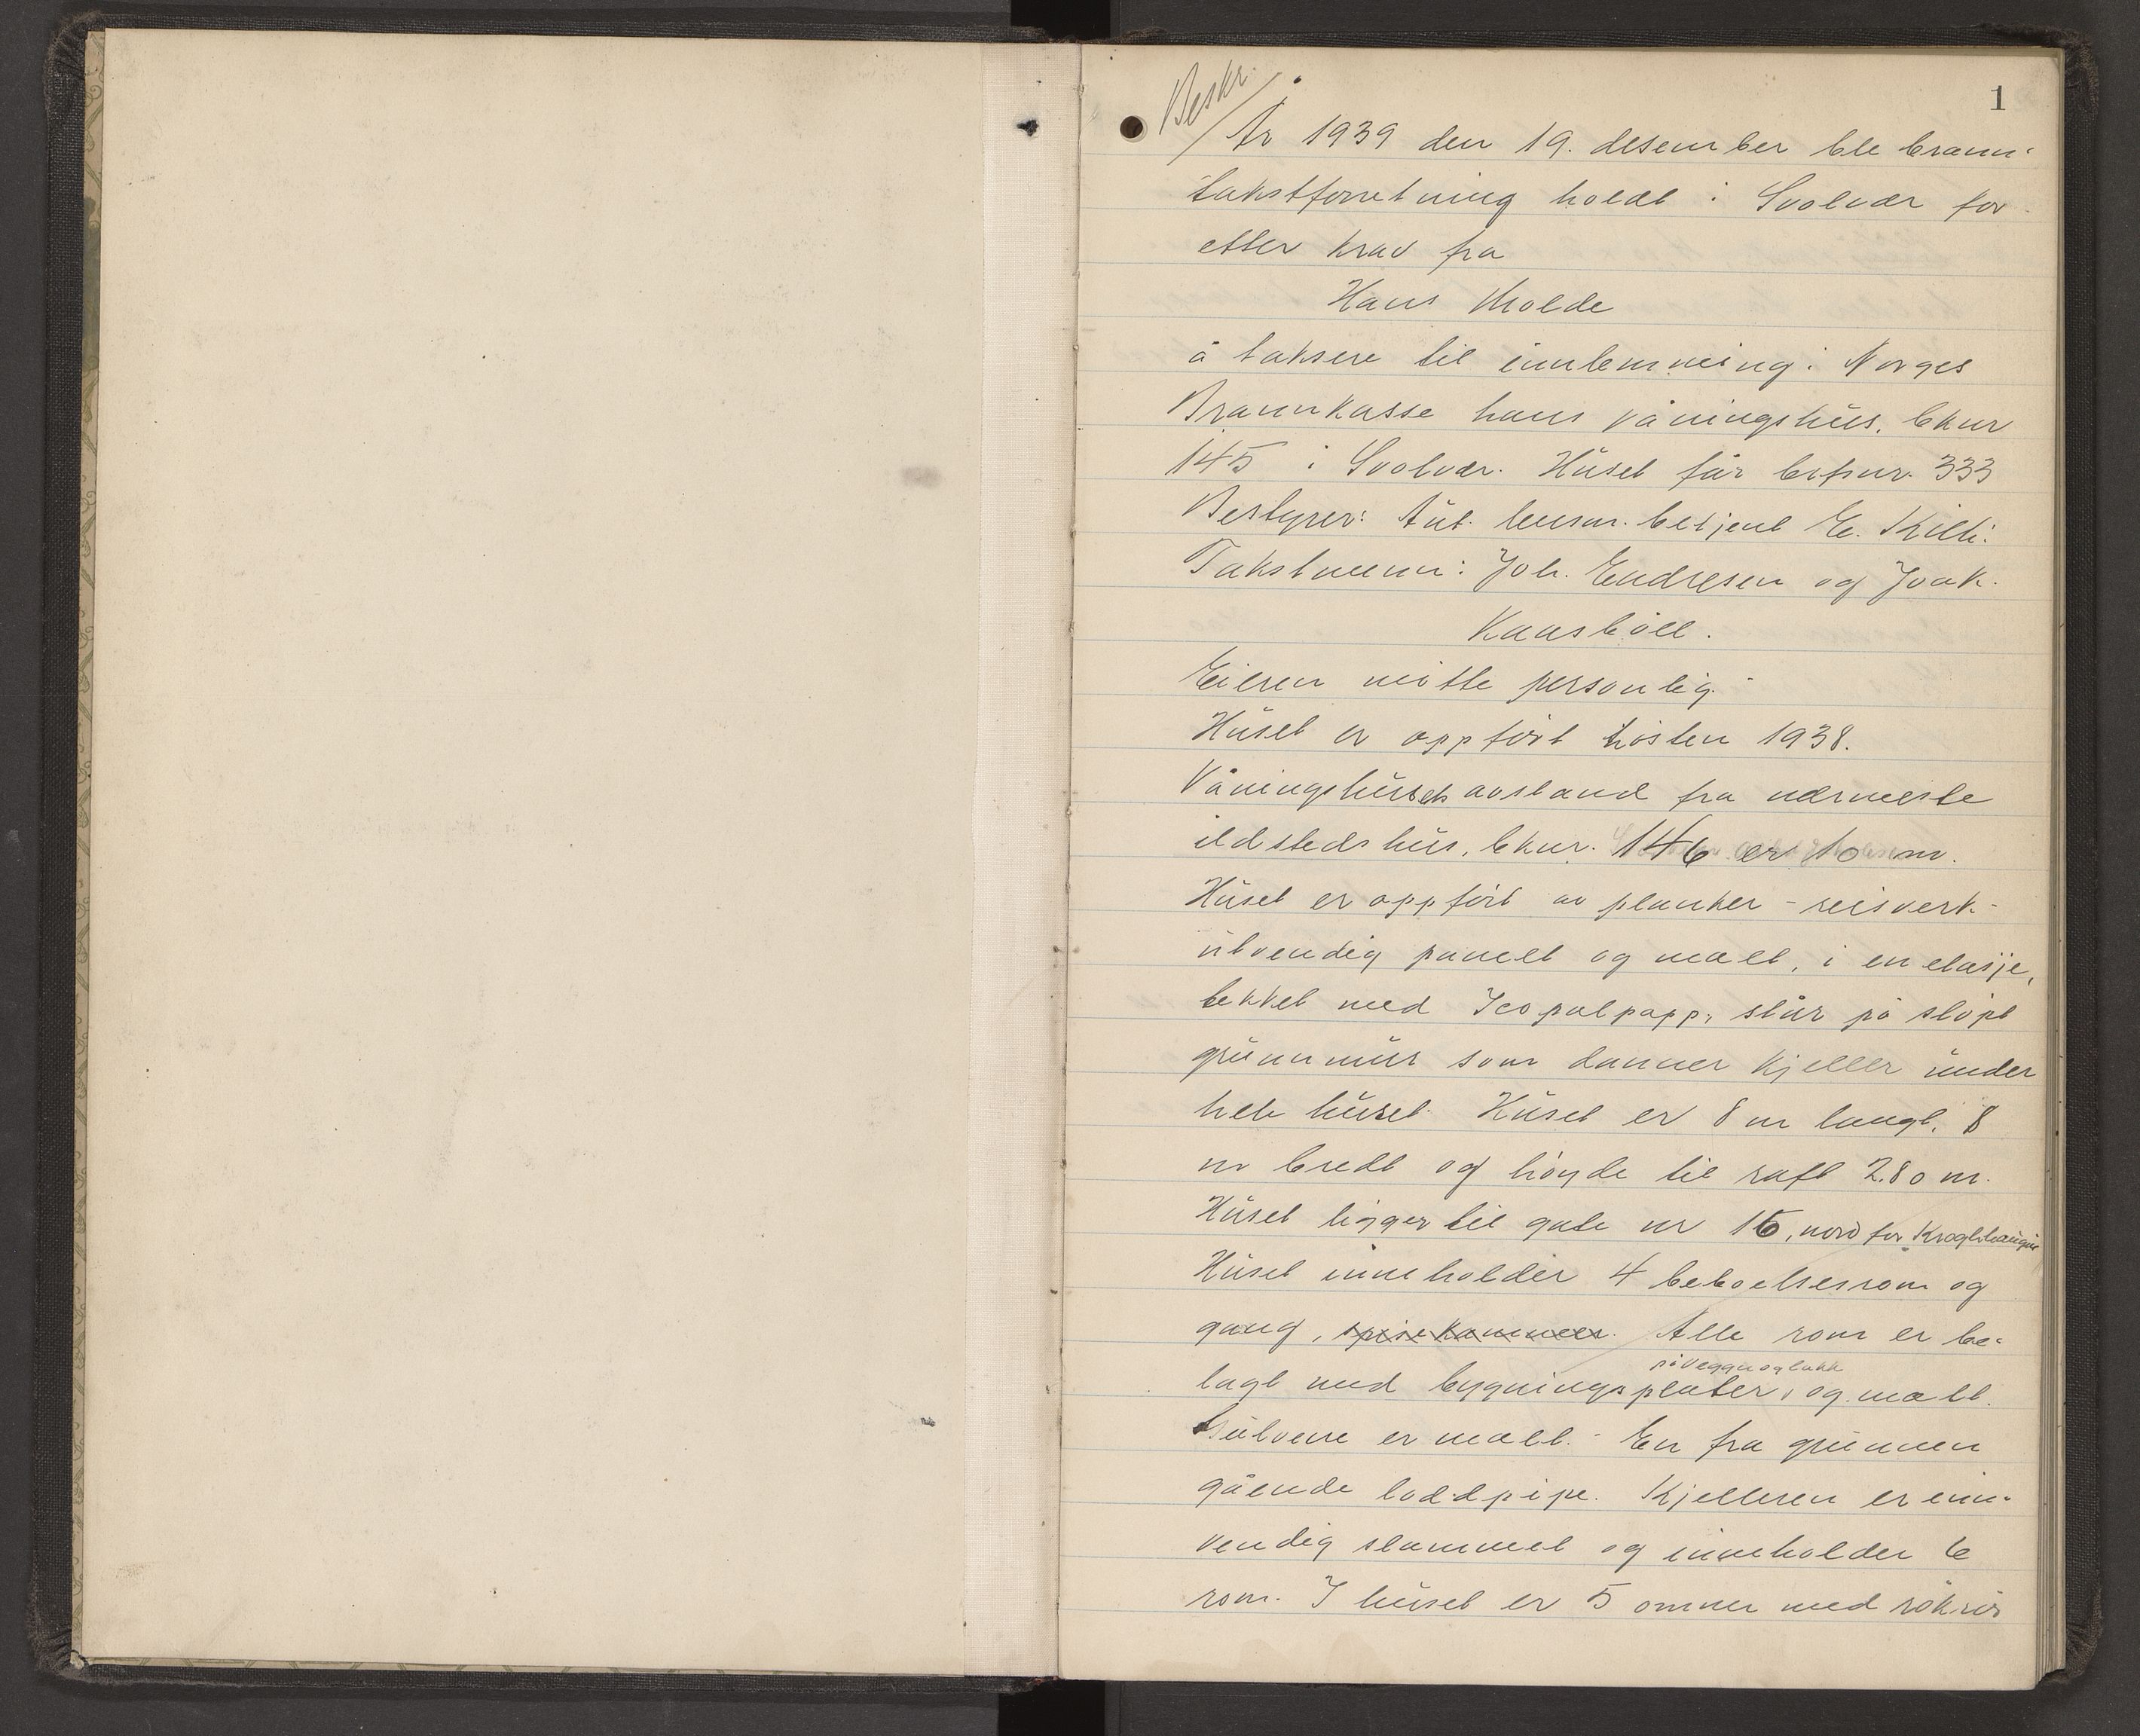 1
Beskr.
År 1939 den 19. desember ble brann-
takstforretning holdt i Svolvær for
etter krav fra
Hans Molde
å taksere til innlemming i Norges
Brannkasse hans våningshus, bknr
145 i Svolvær. Huset får brfnr. 333
Bestyrer: Aut. lensm. betjent E. Killi.
Takstmenn: Joh. Endresen og Joak.
Kaasbøll.
Eieren møtte personlig.
Huset er oppført høsten 1938.
Våningshusets avstand fra nærmeste
ildstedshus, bknr. 146 er 10 m.
Huset er oppført av planker - reisverk -
utvendig panelt og malt, i en etasje,
tekket med Icopalpapp, står på støpt
grunnmur som danner kjeller under
hele huset. Huset er 8 m langt, 8
m bredt og høyde til raft 2.80 m.
Huset ligger til gate nr 15, nord for
Huset inneholder 4 beboelsesrom og
gang, spisekammer. Alle rom er be-
på vegger og takk
lagt med bygningsplater, og malt.
Gulvene er malt. En fra grunnen
gående loddpipe. Kjelleren er inn-
vendig slammet og inneholder 6
rom. I huset er 5 ovner med rökrør